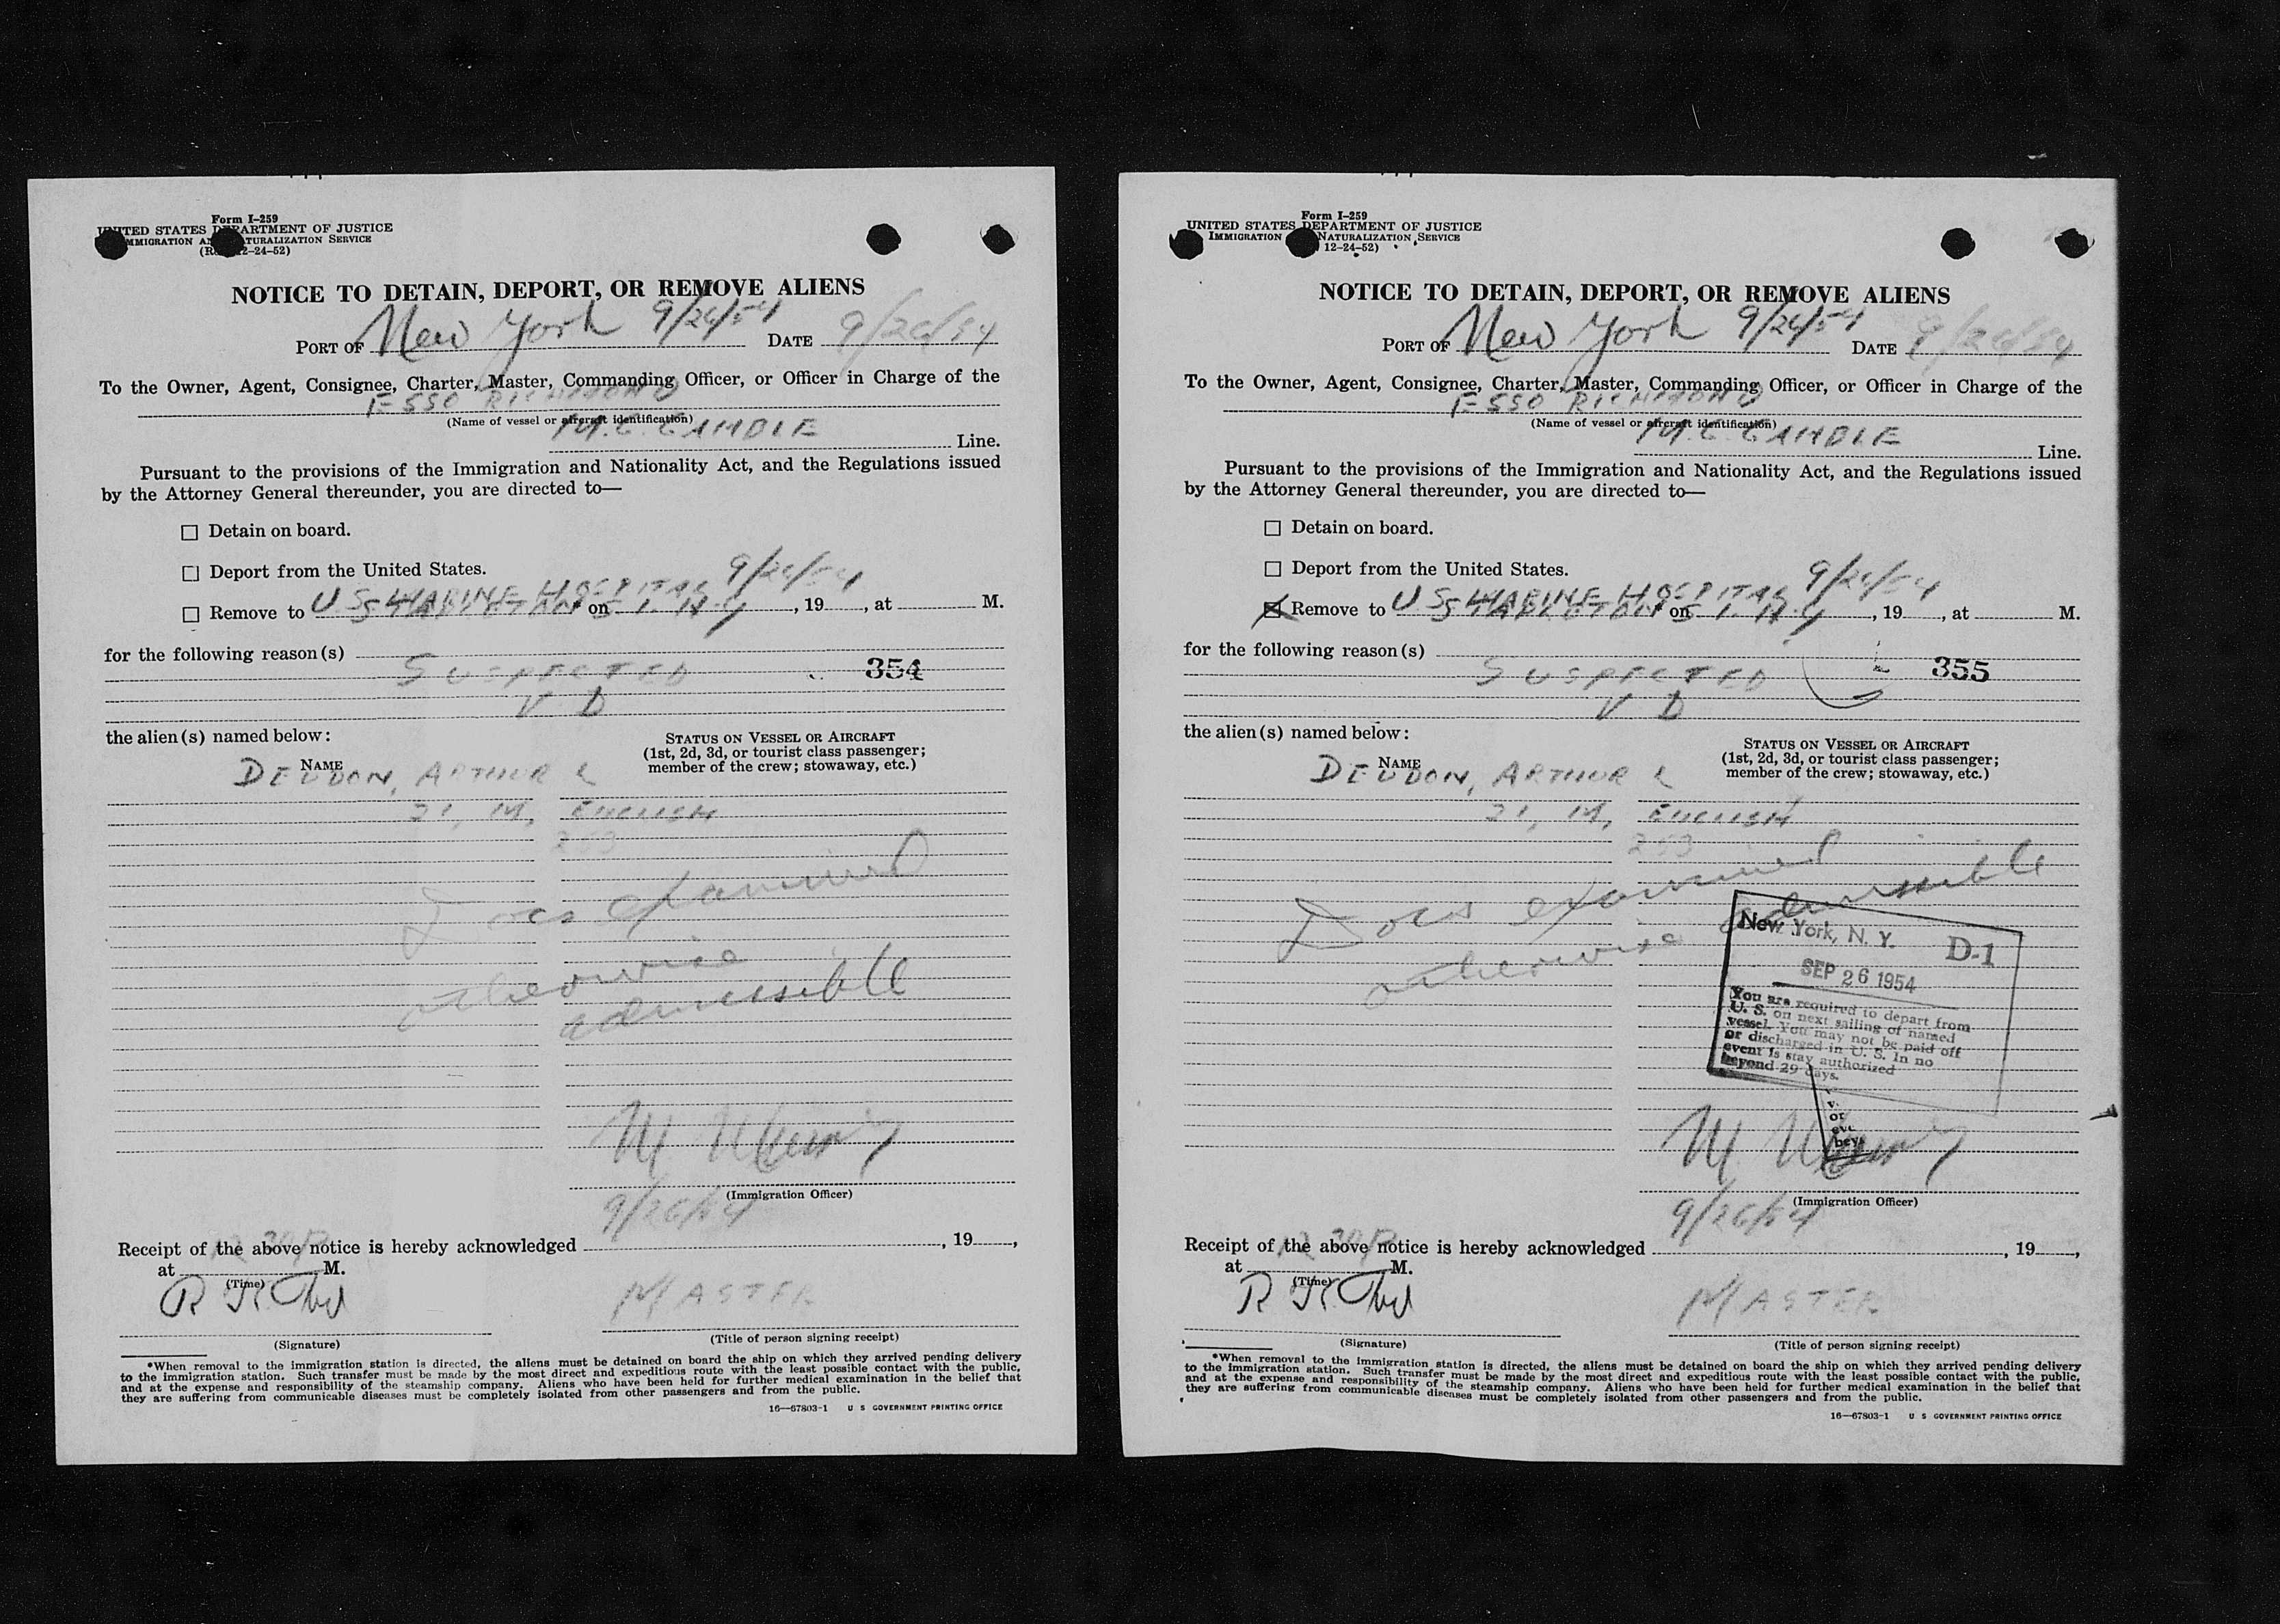 Form I-259
UNITED STATES DEPARTMENT OF JUSTICE
IMMIGRATION AND NATURALIZATION SERVICE
12-24-52)
NOTICE TO DETAIN, DEPORT, OR REMOVE ALIENS
PORT OF New York 9/26/54 DATE 9/26/54
To the Owner, Agent, Consignee, Charter, Master, Commanding Officer, or Officer in Charge of the
ESSO RICHMOND
(Name of vessel or aircraft identification)
M.C. GAMBLE Line.
Pursuant to the provisions of the Immigration and Nationality Act, and the Regulations issued
by the Attorney General thereunder, you are directed to—
☐ Detain on board.
☐ Deport from the United States. 9/26/54
☐ Remove to U S MARINE HOSPITAL on , 19 , at M.
STAPLETON S. I. N.Y
for the following reason(s)
SUSPECTED 354
V D
the alien(s) named below:
NAME
STATUS ON VESSEL OR AIRCRAFT
(1st, 2d, 3d, or tourist class passenger;
member of the crew; stowaway, etc.)
ARTHUR L
21, M, ENGLISH
253
Docs examined
otherwise
admissible
(Immigration Officer)
9/26/54
Receipt of the above notice is hereby acknowledged , 19 ,
at 12 30P M.
(Time)
MASTER
(Signature)
(Title of person signing receipt)
*When removal to the immigration station is directed, the aliens must be detained on board the ship on which they arrived pending delivery
to the immigration station. Such transfer must be made by the most direct and expeditious route with the least possible contact with the public,
and at the expense and responsibility of the steamship company. Aliens who have been held for further medical examination in the belief that
they are suffering from communicable diseases must be completely isolated from other passengers and from the public.
16—67803-1 U S GOVERNMENT PRINTING OFFICE
Form I-259
UNITED STATES DEPARTMENT OF JUSTICE
IMMIGRATION NATURALIZATION SERVICE
12-24-52)
NOTICE TO DETAIN, DEPORT, OR REMOVE ALIENS
PORT OF New York 9/26/54 DATE 9/26/54
To the Owner, Agent, Consignee, Charter, Master, Commanding Officer, or Officer in Charge of the
ESSO RICHMOND
(Name of vessel or aircraft identification)
M.C. GAMBLE Line.
Pursuant to the provisions of the Immigration and Nationality Act, and the Regulations issued
by the Attorney General thereunder, you are directed to—
☐ Detain on board.
☐ Deport from the United States. 9/26/54
☒ Remove to U S MARINE HOSPITAL on , 19 , at M.
STAPLETON S. I. N.Y
for the following reason(s)
SUSPECTED 355
V D
the alien(s) named below:
NAME
STATUS ON VESSEL OR AIRCRAFT
(1st, 2d, 3d, or tourist class passenger;
member of the crew; stowaway, etc.)
ARTHUR L
21, M, ENGLISH
253
Docs examined
otherwise admissible
New York, N. Y. D-1
SEP 26 1954
You are required to depart from
U. S. on next sailing of named
vessel. You may not be paid off
or discharged in U. S. In no
event is stay authorized
beyond 29 days.
v.
or
eve
beyo
(Immigration Officer)
9/26/54
Receipt of the above notice is hereby acknowledged , 19 ,
at 12 30P M.
(Time)
MASTER
(Signature)
(Title of person signing receipt)
*When removal to the immigration station is directed, the aliens must be detained on board the ship on which they arrived pending delivery
to the immigration station. Such transfer must be made by the most direct and expeditious route with the least possible contact with the public,
and at the expense and responsibility of the steamship company. Aliens who have been held for further medical examination in the belief that
they are suffering from communicable diseases must be completely isolated from other passengers and from the public.
16—67803-1 U S GOVERNMENT PRINTING OFFICE